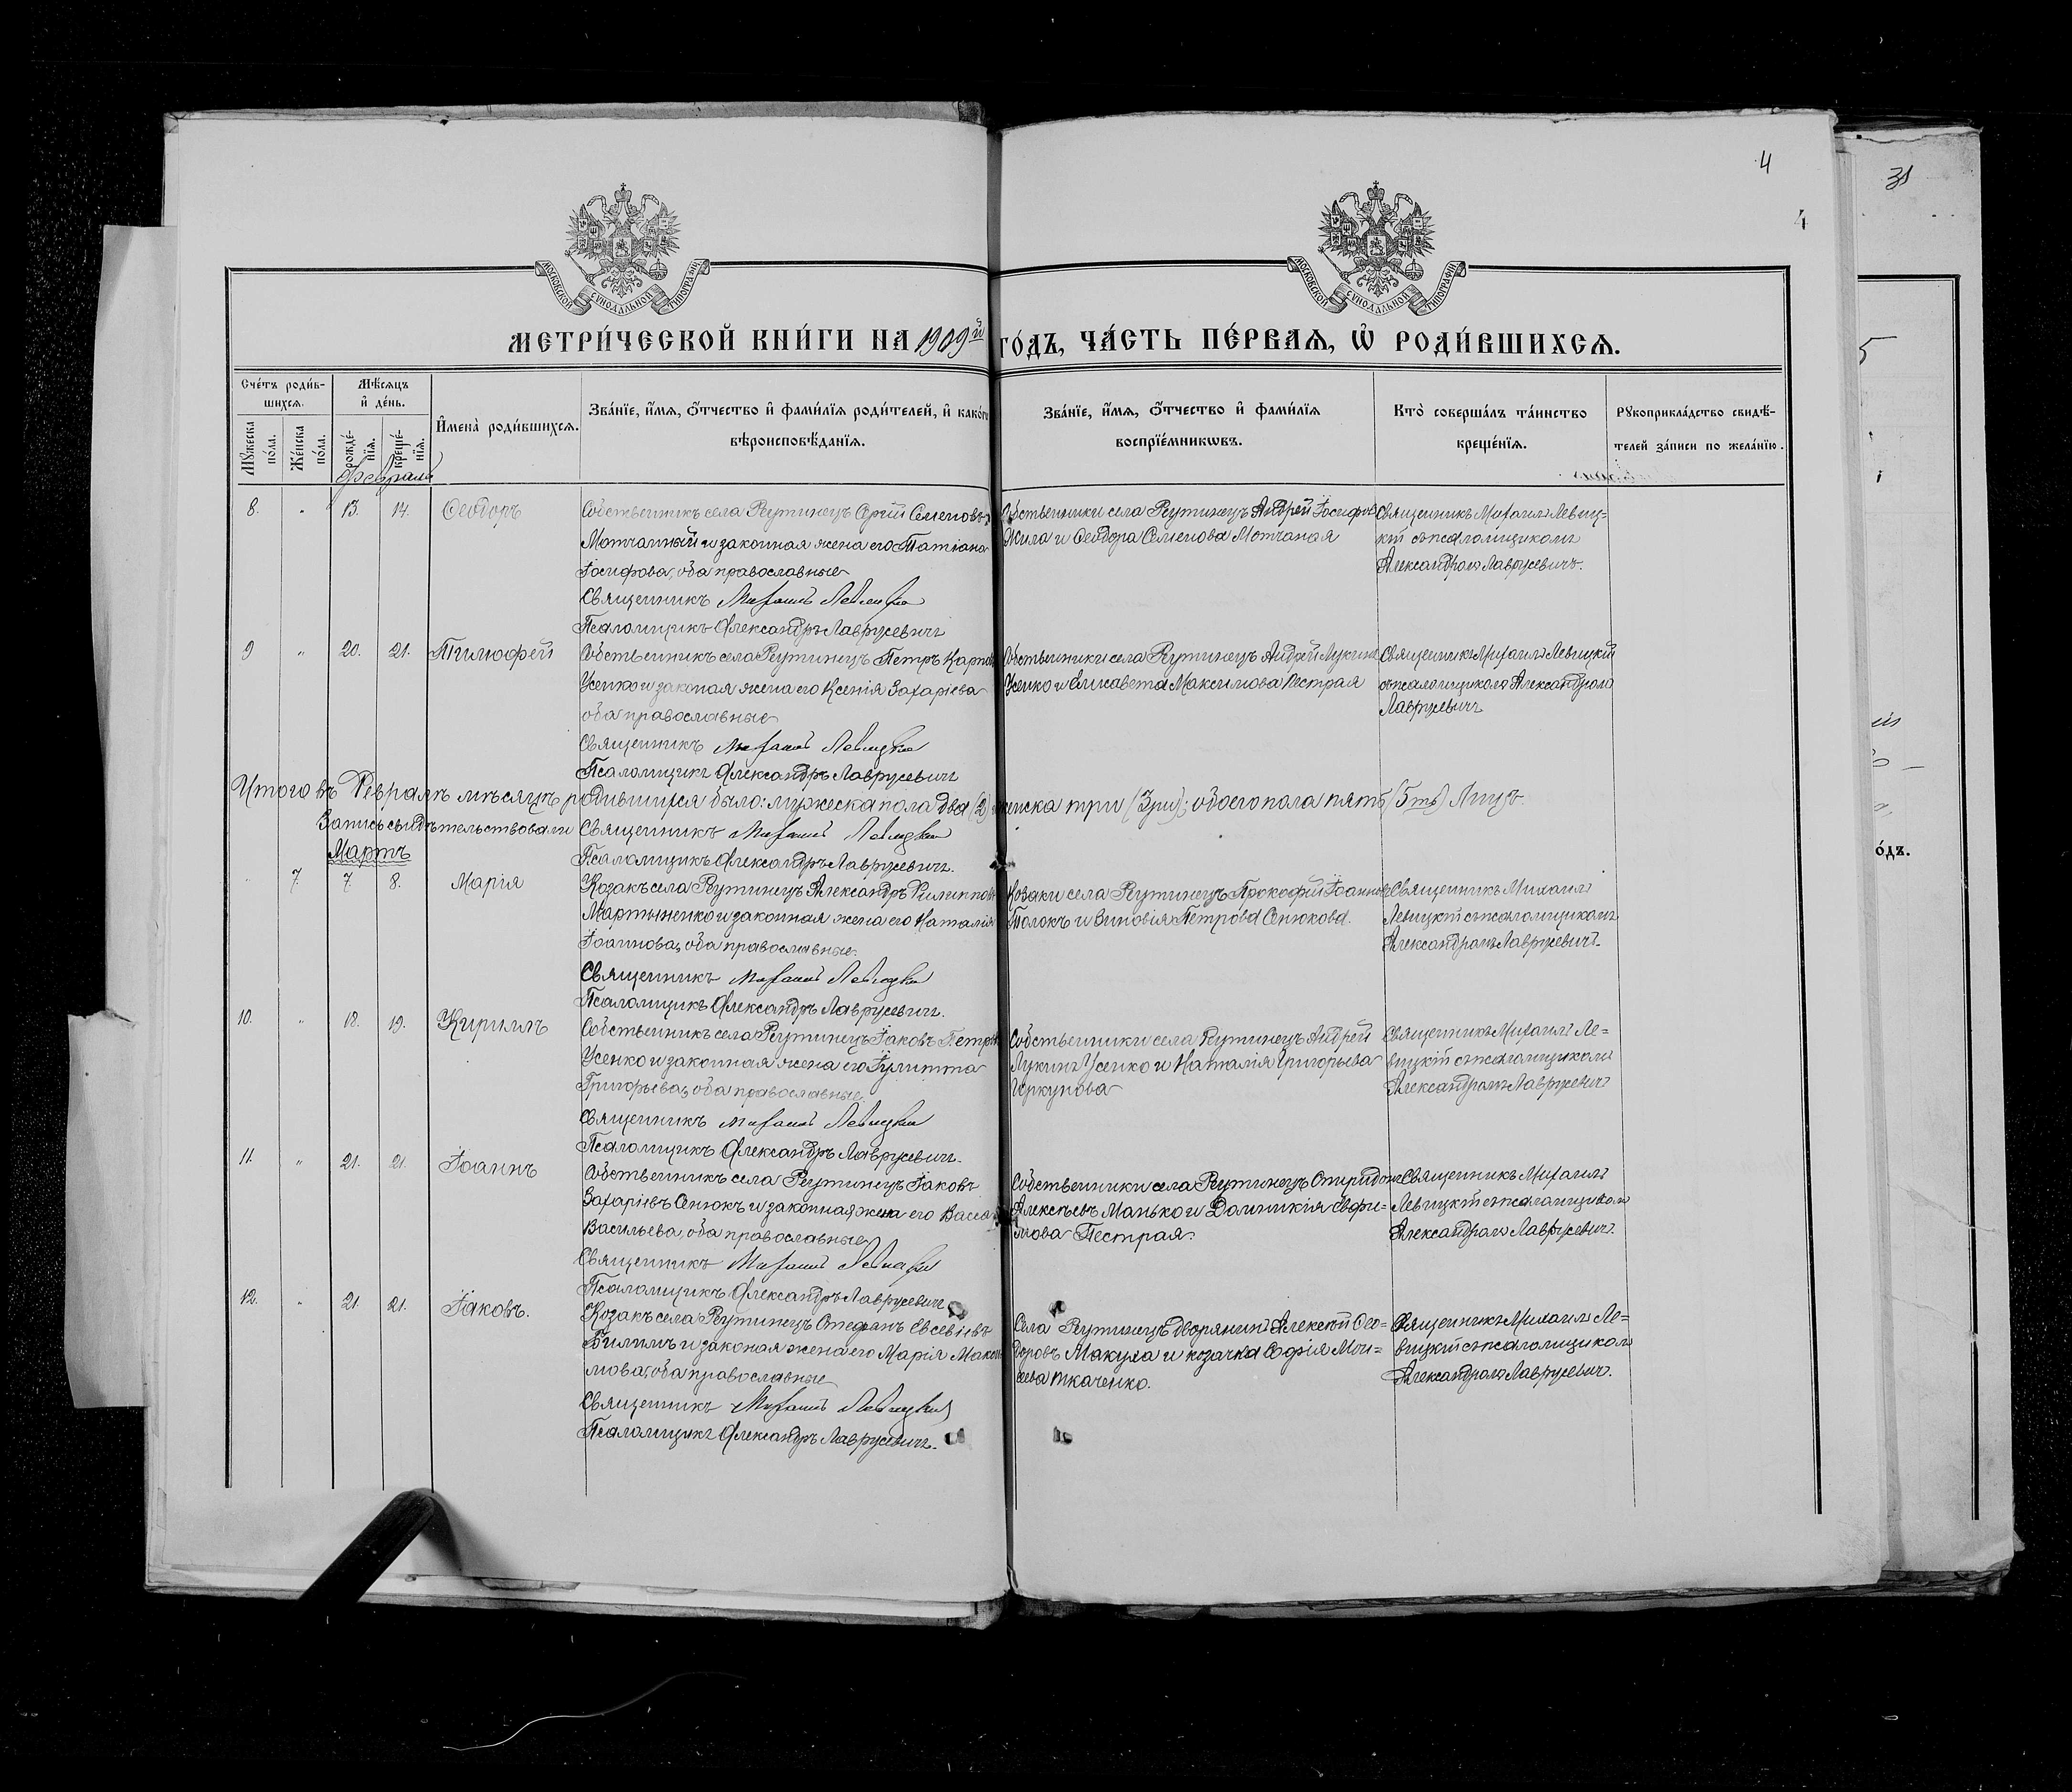 4
31
4
МОСКОВСКОЙ СѴНОДАЛЬНОЙ ТИПОГРАФІИ
МОСКОВСКОЙ СѴНОДАЛЬНОЙ ТИПОГРАФІИ
МЕТРИ́ЧЕСКОЙ КНИ́ГИ НА 1909й ГО́ДЪ, ЧА́СТЬ ПЕ́РВАѦ, Ѡ҆ РОДИ́ВШИХСѦ.
Сче́тъ роди́в-
шихсѧ.
Мѣ́сѧцъ
и҆ де́нь.
Мꙋ́жеска
по́ла.
Же́нска
по́ла.
рожде́-
нїѧ.
креще́-
нїѧ.
И҆мена̀ роди́вшихсѧ.
Зва́нїе, и҆́мѧ, ѻ҆́тчество и҆ фами́лїѧ роди́телей, и҆ како́гѡ
вѣроисповѣ́данїѧ.
Зва́нїе, и҆́мѧ, ѻ҆́тчество и҆ фами́лїѧ
воспрїе́мникѡвъ.
Кто̀ соверша́лъ та́инство
креще́нїѧ.
Рꙋкоприкла́дство свидѣ́-
телей за́писи по жела́нїю.
Февраль
8. " 13. 14. Ѳеодоръ
Собственникъ села Реутинецъ Сергій Семеновъ
Мотчаный и законная жена его Татіана
Іосифова, оба православные
Священникъ Михаилъ Левицкій
Псаломщикъ Александръ Лаврусевичъ
Собственники села Реутинецъ Андрей Іосифовъ
Жила и Ѳеодора Семенова Мотчаная
Священникъ Михаилъ Левиц=
кій съ псаломщикомъ
Александромъ Лаврусевичъ.
9 " 20. 21. Тимоѳей
Собственникъ села Реутинецъ Петръ Карповъ
Усенко и законая жена его Ксенія Захаріева
оба православные
Священникъ Михаилъ Левицкій
Псаломщикъ Александръ Лаврусевичъ
Собственники села Реутинецъ Андрей Лукинъ
Усенко и Елисавета Максимова Пестрая
Священникъ Михаилъ Левицкій
съ псаломщикомъ Александромъ
Лаврусевичъ
Итого въ Февралѣ мѣсяцѣ родившихся было: мужеска пола два (2) женска три (3ри); обоего пола пять (5ть) Лицъ.
Запись свидѣтельствовали
Священникъ Михаилъ Левицкій
Псаломщикъ Александръ Лаврусевичъ.
Мартъ
7. 7. 8. Марія
Козакъ села Реутинецъ Александръ Филипповъ
Мартыненко и законная жена его Наталія
Іоаннова, оба православные.
Священникъ Михаилъ Левицкій
Псаломщикъ Александръ Лаврусевичъ.
Козаки села Реутинецъ Прокофій Іоанновъ
Толокъ и Зиновія Петрова Сенюкова.
Священникъ Михаилъ
Левицкій съ псаломщикомъ
Александромъ Лаврусевичъ.
10. " 18. 19. Кириллъ
Собственникъ села Реутинецъ Іаковъ Петровъ
Усенко и законная жена его Іулитта
Григорьева, оба православные.
Священникъ Михаилъ Левицкій
Псаломщикъ Александръ Лаврусевичъ.
Собственники села Реутинецъ Андрей
Лукинъ Усенко и Наталія Григорьева
Священникъ Михаилъ Ле=
вицкій съ псаломщикомъ
Александромъ Лаврусевичъ
11. " 21. 21. Іоаннъ
Собственникъ села Реутинецъ Іаковъ
Захаріевъ Сенюкъ и законная жена его Васса
Васильева, оба православные
Священникъ Михаилъ Левицкій
Псаломщикъ Александръ Лаврусевичъ
Собственники села Реутинецъ Спиридонъ
Алексѣевъ Манько и Домникія Евфи=
мова Пестрая.
Священникъ Михаилъ
Левицкій съ псаломщикомъ
Александромъ Лаврусевичъ.
12. " 21. 21. Іаковъ.
Козакъ села Реутинецъ Стефанъ Евсевіевъ
Билымъ и законая жена его Марія Макси
мова, оба православные
Священникъ Михаилъ Левицкій
Псаломщикъ Александръ Лаврусевичъ.
Села Реутинецъ дворянинъ Алексѣй Ѳео=
доровъ Макуха и козачка Софія Мои=
сеева Ткаченко.
Священникъ Михаилъ Ле=
вицкій съ псаломщикомъ
Александромъ Лаврусевичъ.
о́дъ.